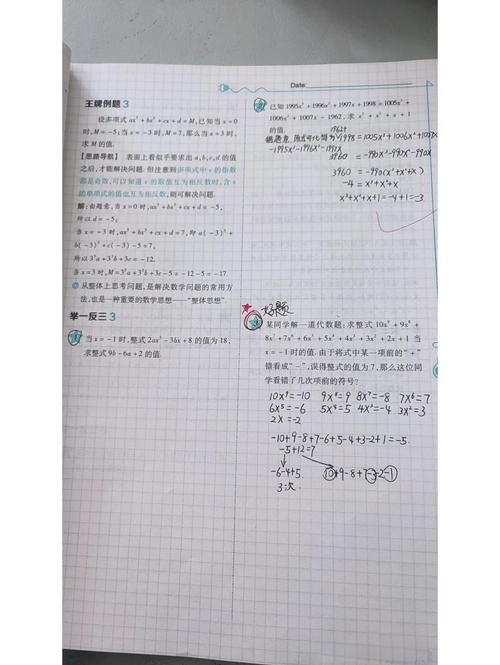 Date:
王牌例题3
设多项式ax⁵+bx³+cx+d=M,已知当x=0
时,M=-5;当x=-3时,M=7,那么当x=3时,
求M的值.
【思路导航】 表面上看似乎要求出a,b,c,d的值
之后,才能解决问题.但注意到多项式中x的指数
都是奇数,可以知道x的取值互为相反数时,含x
的单项式的值也互为相反数,则可解决问题.
解:由题意,当x=0时,ax⁵+bx³+cx+d=-5,
所以d=-5;
当x=-3时,ax⁵+bx³+cx+d=7,即a(-3)⁵+
b(-3)³+c(-3)-5=7,
所以3⁵a+3³b+3c=-12.
当x=3时,M=3⁵a+3³b+3c-5=-12-5=-17.
从整体上思考问题,是解决数学问题的常用方
法,也是一种重要的数学思想——“整体思想”.
举一反三3
当x=-1时,整式2ax²-3bx+8的值为18,
求整式9b-6a+2的值.
已知1995x³+1996x²+1997x+1998=1005x³+
1006x²+1007x-1962,求x³+x²+x+1
的值.
1998=1005x³+1006x²+1007x
-1995x³-1996x²-1997x
3960=-990x³-990x²-990x
3960=-990(x³+x²+x)
-4=x³+x²+x
x³+x²+x+1=-4+1=-3
好题
某同学解一道代数题:求整式10x⁹+9x⁸+
8x⁷+7x⁶+6x⁵+5x⁴+4x³+3x²+2x+1当
x=-1时的值.由于将式中某一项前的“+”
错看成“-”,误得整式的值为7,那么这位同
学看错了几次项前的符号?
10x⁹=-10 9x⁸=9 8x⁷=-8 7x⁶=7
6x⁵=-6 5x⁴=5 4x³=-4 3x²=3
2x=-2
-10+9-8+7-6+5-4+3-2+1=-5
-5+12=7
-6-4+5
3次